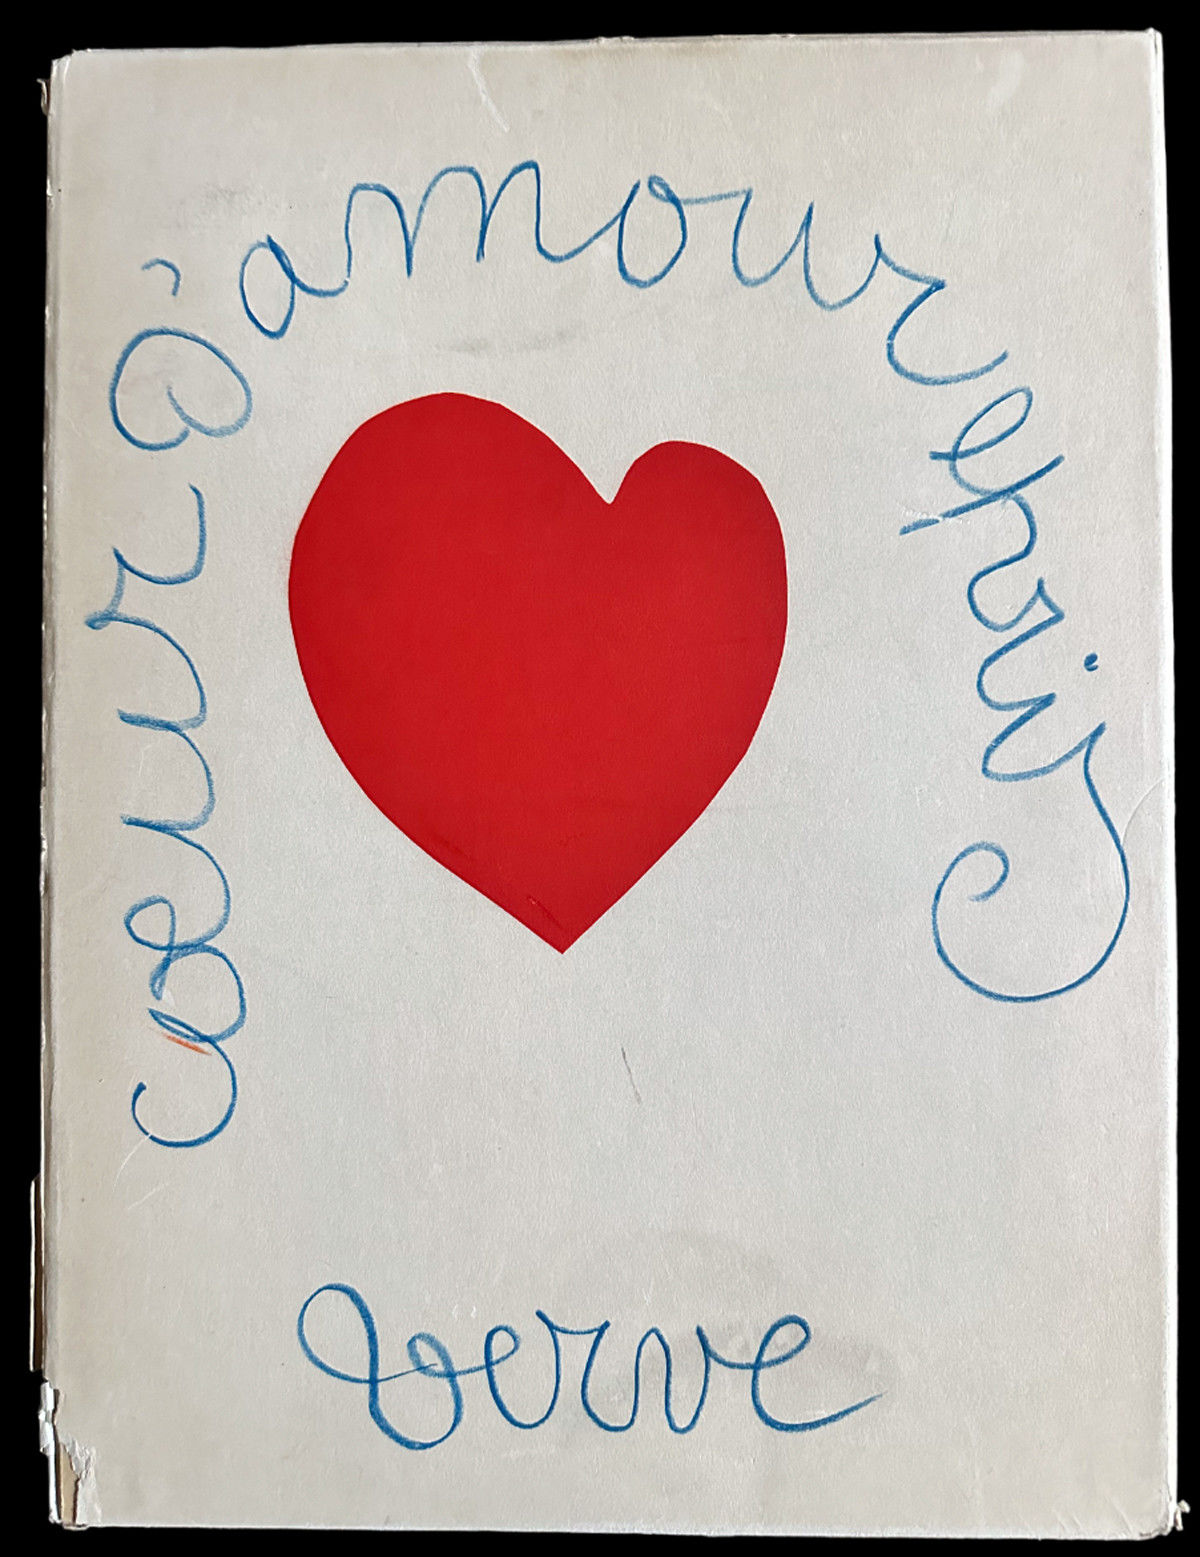 Coeur D'amour epris
Verve